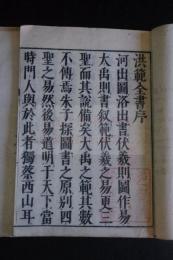 洪範全書序
河出圖洛出書伏羲則圖作易
大禹則書叙範伏羲之易更三
聖而其說備矣大禹之範其數
不傳焉朱子探圖書之原别四
聖之易然後易道明于天下當
時門人與於此者獨蔡西山耳